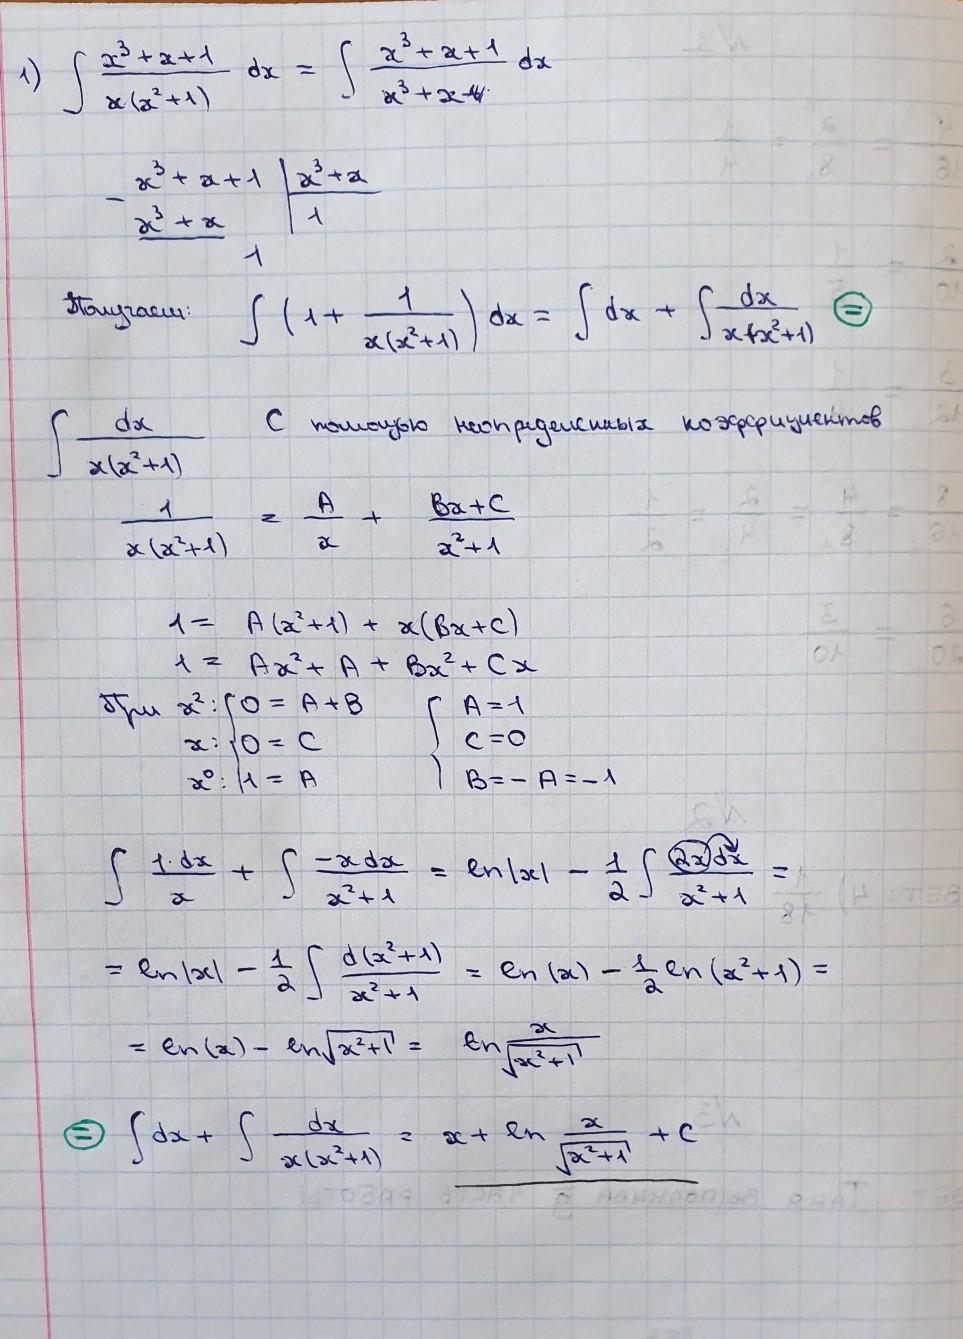 1) ∫ (x³ + x + 1)/(x(x² + 1)) dx = ∫ (x³ + x + 1)/(x³ + x) dx
- x³ + x + 1 | x³ + x
x³ + x | 1
1
Получаем: ∫ (1 + 1/(x(x² + 1))) dx = ∫ dx + ∫ dx/(x(x² + 1)) ⊜
∫ dx/(x(x² + 1)) С помощью неопределенных коэффициентов
1/(x(x² + 1)) = A/x + (Bx + C)/(x² + 1)
1 = A(x² + 1) + x(Bx + C)
1 = Ax² + A + Bx² + Cx
При x²: { 0 = A + B { A = 1
x: { 0 = C { C = 0
x⁰: { 1 = A { B = - A = - 1
∫ 1·dx/x + ∫ -x dx/(x² + 1) = ln|x| - 1/2 ∫ 2x dx/(x² + 1) =
= ln|x| - 1/2 ∫ d(x² + 1)/(x² + 1) = ln(x) - 1/2 ln(x² + 1) =
= ln(x) - ln√(x² + 1) = ln x/√(x² + 1)
⊜ ∫ dx + ∫ dx/(x(x² + 1)) = x + ln x/√(x² + 1) + C